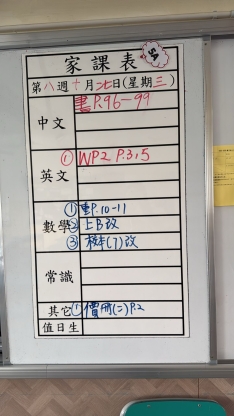 家課表
第八週十月 日(星期三)
中文 書P.96-99
英文 ① WP2 P.3,5
數學 ① 書P.10-11
② 上B改
③ (7)改
常識
其它 ① (二)P.2
值日生